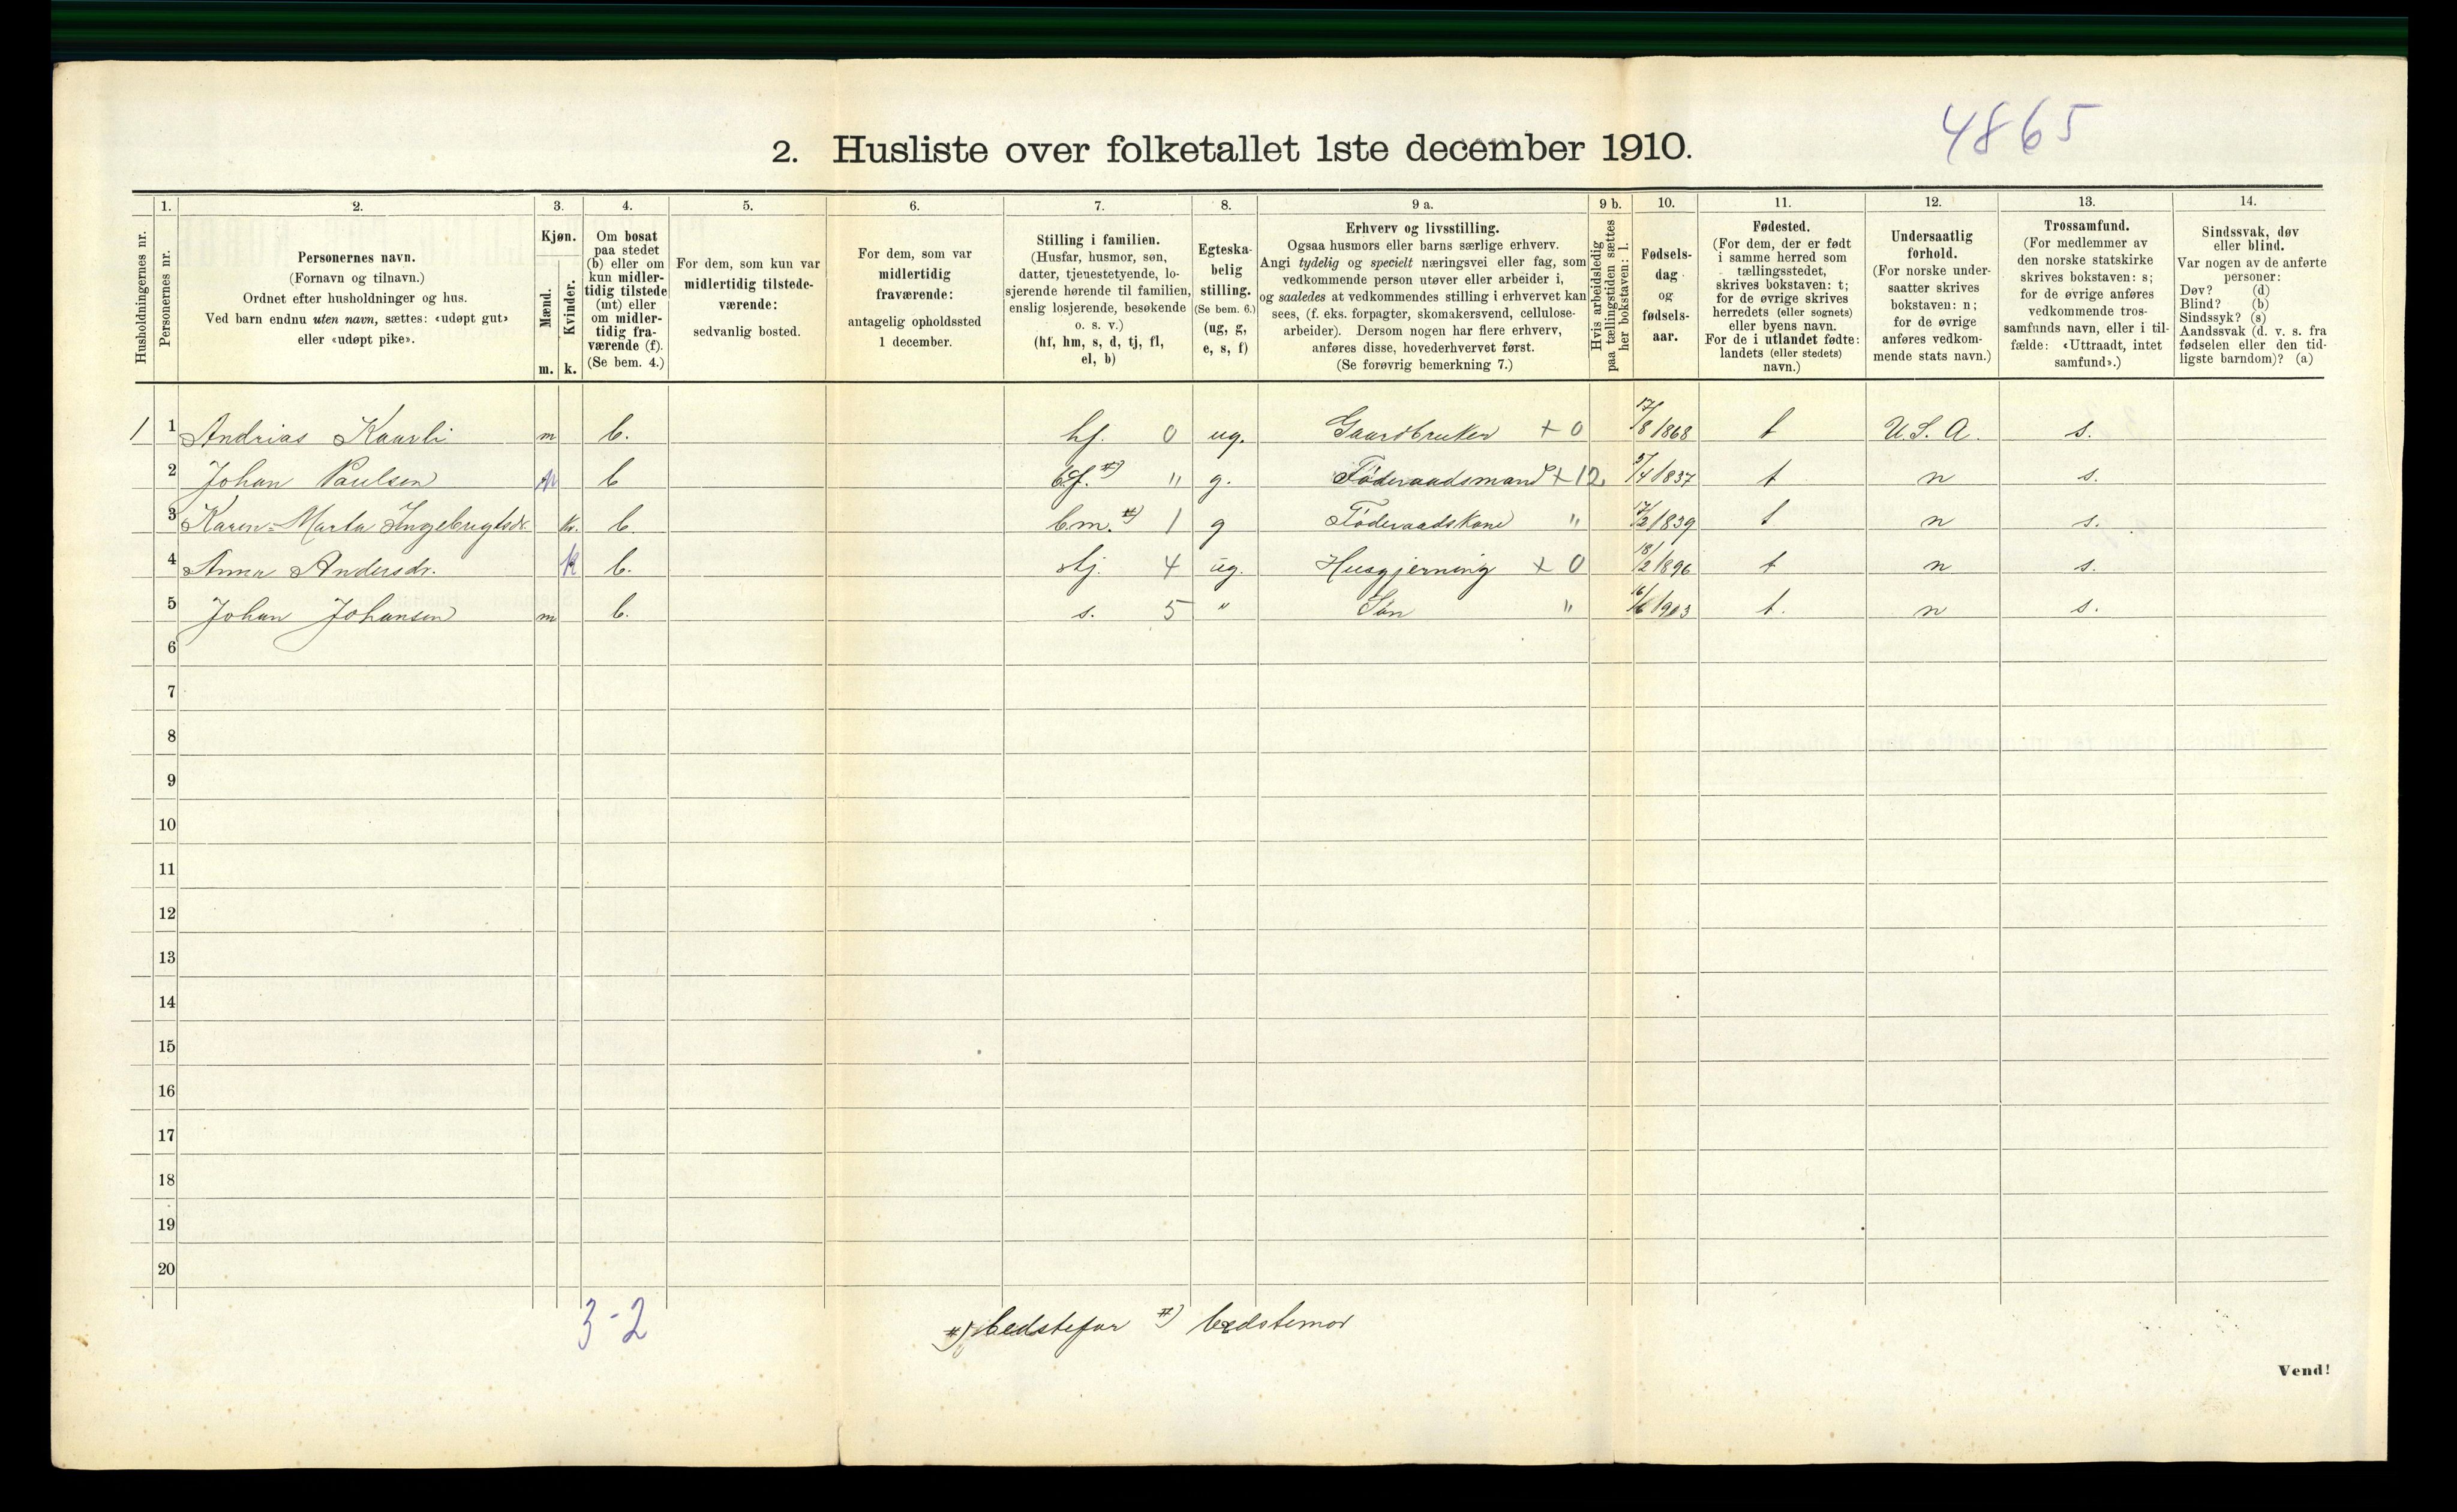 4865
2. Husliste over folketallet 1ste december 1910.
Husholdningernes nr.
1.
Personernes nr.
2.
Personernes navn.
(Fornavn og tilnavn.)
Ordnet efter husholdninger og hus.
Ved barn endnu uten navn, sættes: «udøpt gut»
eller «udøpt pike».
3.
Kjøn.
Mænd.
Kvinder.
m. k.
4.
Om bosat
paa stedet
(b) eller om
kun midler-
tidig tilstede
(mt) eller
om midler-
tidig fra-
værende (f).
(Se bem. 4.)
5.
For dem, som kun var
midlertidig tilstede-
værende:
sedvanlig bosted.
6.
For dem, som var
midlertidig
fraværende:
antagelig opholdssted
1 december.
7.
Stilling i familien.
(Husfar, husmor, søn,
datter, tjenestetyende, lo-
sjerende hørende til familien,
enslig losjerende, besøkende
o. s. v.)
(hf, hm, s, d, tj, fl,
el, b)
8.
Egteska-
belig
stilling.
(Se bem. 6.)
(ug, g,
e, s, f)
9 a.
Erhverv og livsstilling.
Ogsaa husmors eller barns særlige erhverv.
Angi tydelig og specielt næringsvei eller fag, som
vedkommende person utøver eller arbeider i,
og saaledes at vedkommendes stilling i erhvervet kan
sees, (f. eks. forpagter, skomakersvend, cellulose-
arbeider). Dersom nogen har flere erhverv,
anføres disse, hovederhvervet først.
(Se forøvrig bemerkning 7.)
9 b.
Hvis arbeidsledig
paa tællingstiden sættes
her bokstaven: l.
10.
Fødsels-
dag
og
fødsels-
aar.
11.
Fødested.
(For dem, der er født
i samme herred som
tællingsstedet,
skrives bokstaven: t;
for de øvrige skrives
herredets (eller sognets)
eller byens navn.
For de i utlandet fødte:
landets (eller stedets)
navn.)
12.
Undersaatlig
forhold.
(For norske under-
saatter skrives
bokstaven: n;
for de øvrige
anføres vedkom-
mende stats navn.)
13.
Trossamfund.
(For medlemmer av
den norske statskirke
skrives bokstaven: s;
for de øvrige anføres
vedkommende tros-
samfunds navn, eller i til-
fælde: «Uttraadt, intet
samfund».)
14.
Sindssvak, døv
eller blind.
Var nogen av de anførte
personer:
Døv? (d)
Blind? (b)
Sindssyk? (s)
Aandssvak (d. v. s. fra
fødselen eller den tid-
ligste barndom)? (a)
1 1 Andrias Kaarli m b. hf. 0 ug. Gaardbruker + 0 17/8 1868 t U.S.A. s.
2 Johan Paulsen m b bf. #) " g. Føderaadsmand + 12 5/4 1837 t n s.
3 Karen-Marta Ingebrigtsdr. k. b. bm. #) 1 g Føderaadskone " 17/2 1839 t n s.
4 Anna Andersdr. k b. tj. 4 ug. Husgjerning + 0 18/2 1896 t n s.
5 Johan Johansen m b. s. 5 " Søn " 16/6 1903 t. n s.
6
7
8
9
10
11
12
13
14
15
16
17
18
19
20
3-2
#) bedstefar #) bedstemor
Vend!